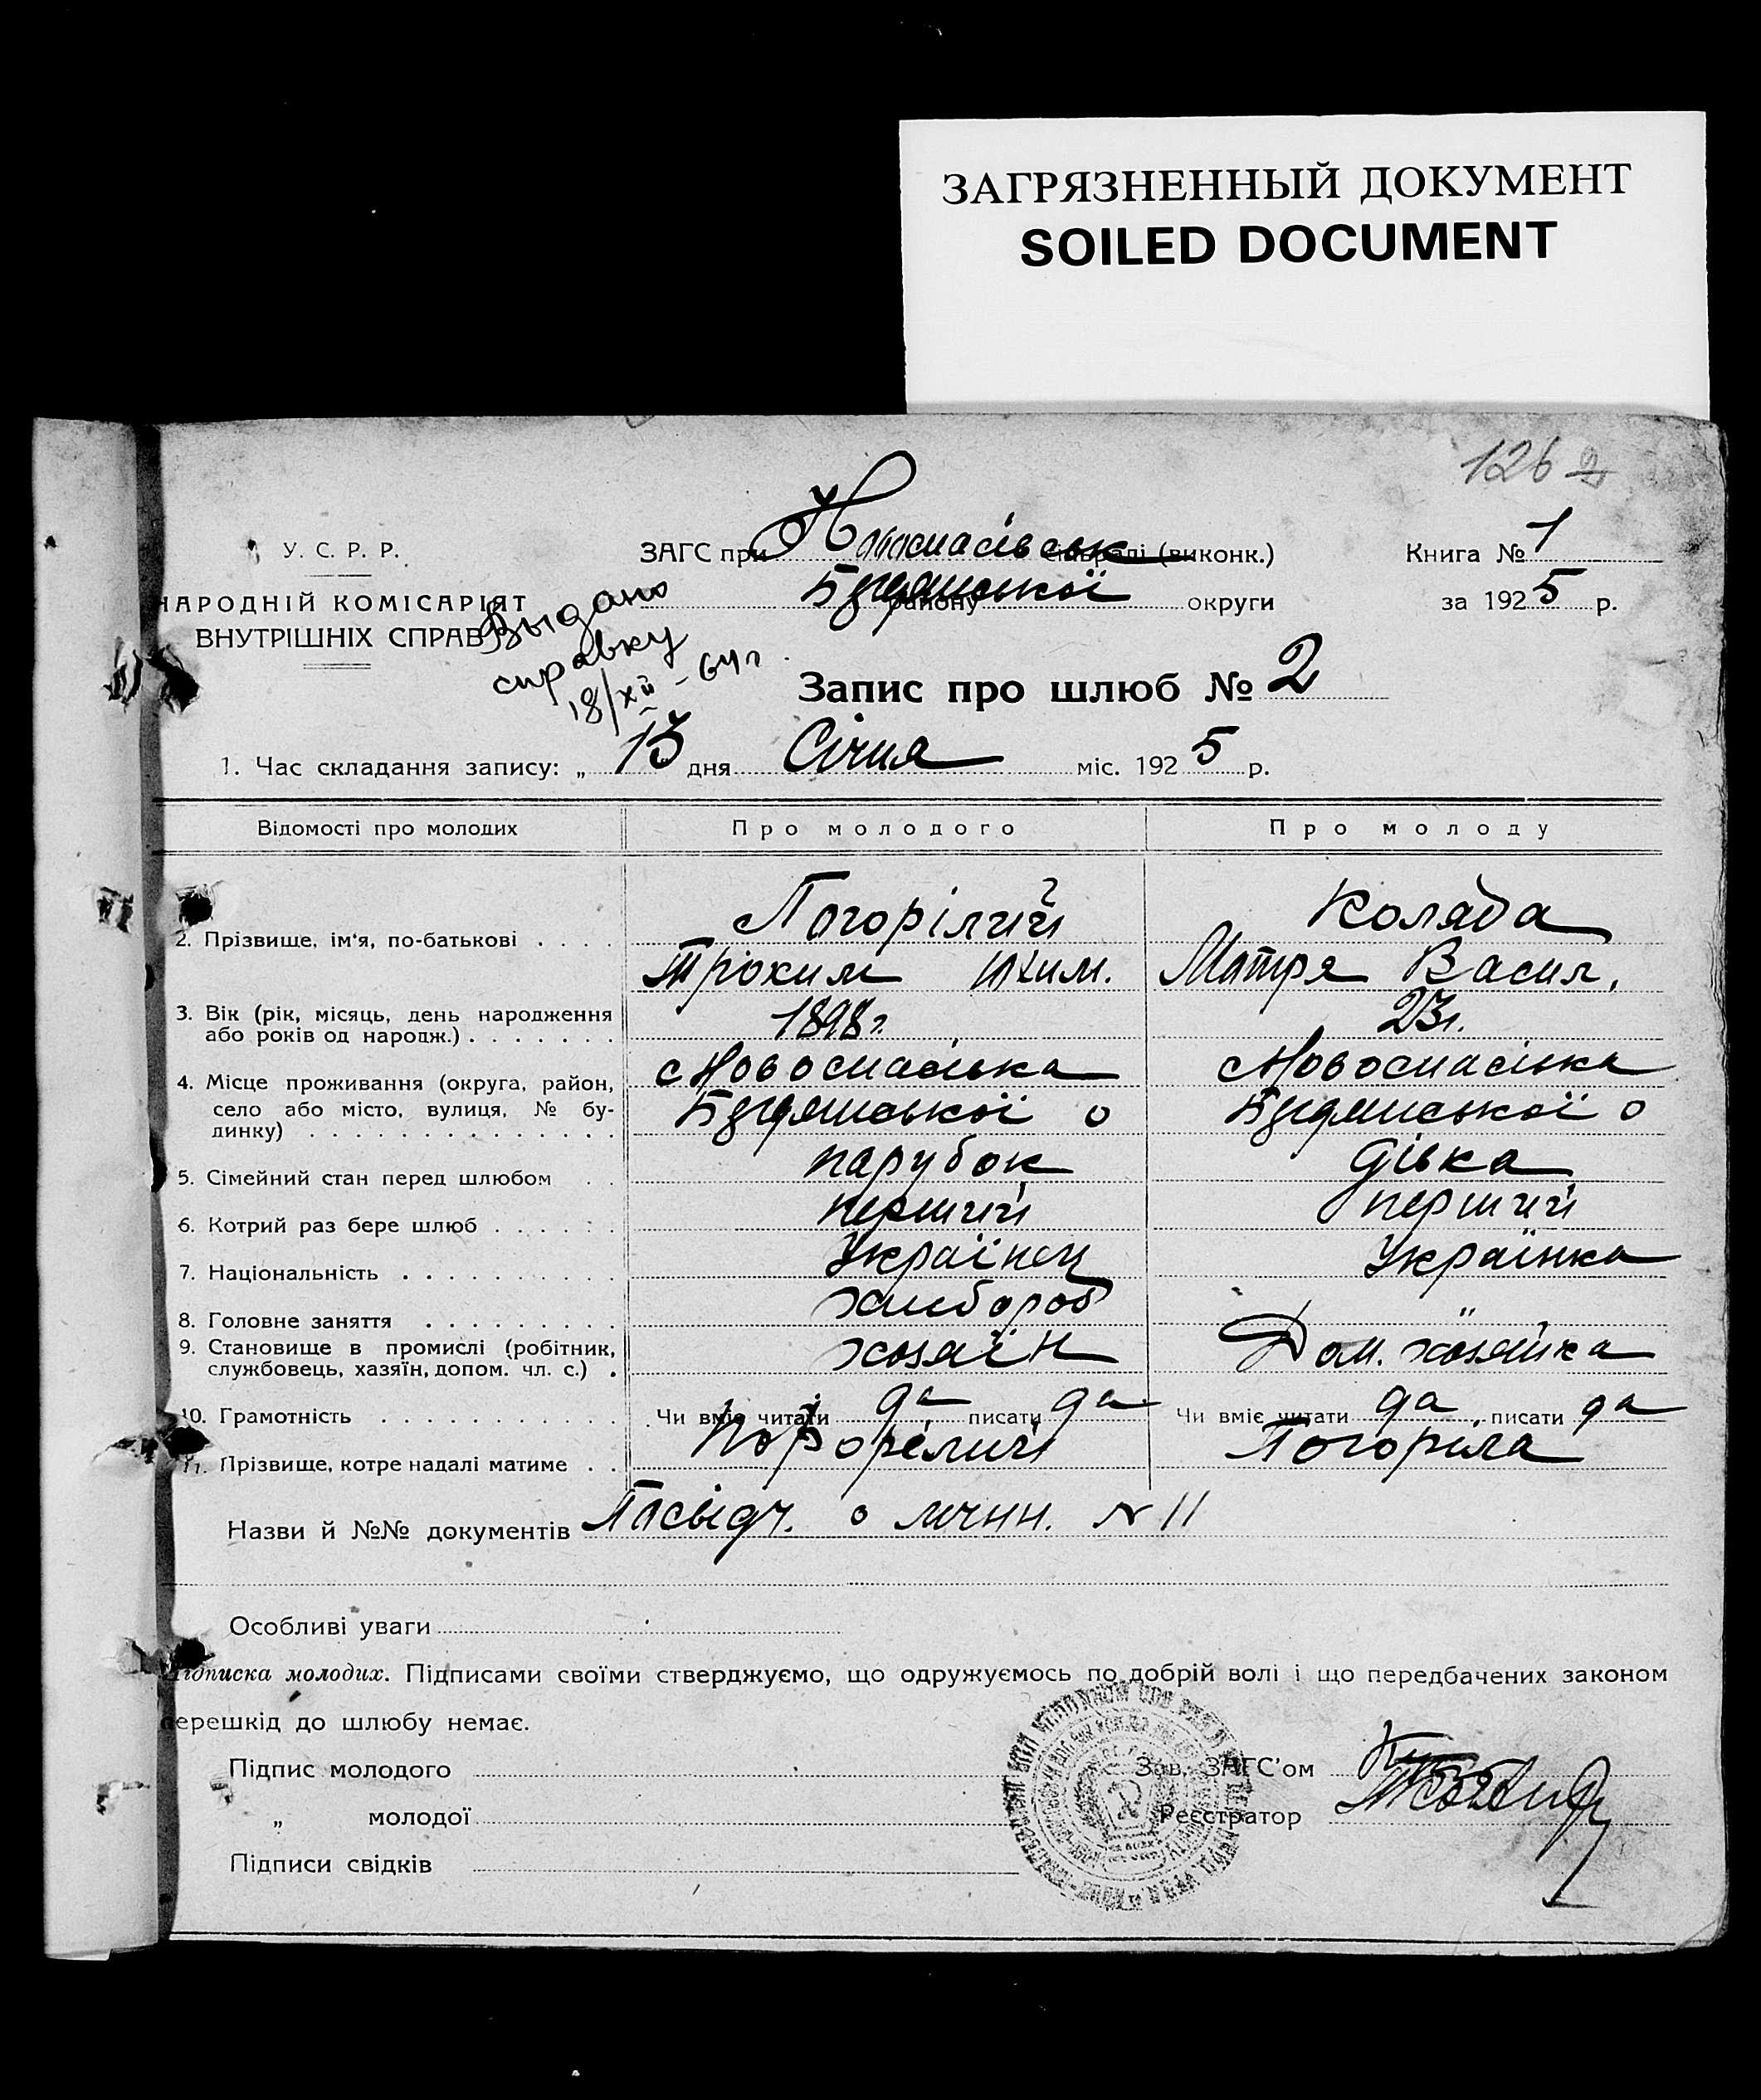 ЗАГРЯЗНЕННЫЙ ДОКУМЕНТ
SOILED DOCUMENT
126
У. С. Р. Р.
НАРОДНІЙ КОМІСАРІЯТ
ВНУТРІШНІХ СПРАВ
Выдано
справку
18/XII - 64 г.
ЗАГС при Новоспасівськ сільраді (виконк.)
району Бердянської округи
Книга № 1
за 1925 р.
Запис про шлюб № 2
1. Час складання запису: „ 13 дня Січня міс. 1925 р.
Відомості про молодих
Про молодого
Про молоду
2. Прізвище, ім'я, по-батькові . . . .
Погорілий
Трохим Юхим.
Коляда
Мотря Васил.
3. Вік (рік, місяць, день народження
або років од народж.) . . . . . . .
1898 г.
23 г.
4. Місце проживання (округа, район,
село або місто, вулиця, № бу-
динку) . . . . . . . . . . . . . .
Новоспасівка
Бердянської о
Новоспасівка
Бердянської о
5. Сімейний стан перед шлюбом . .
парубок
дівка
6. Котрий раз бере шлюб . . . . . .
перший
перший
7. Національність . . . . . . . . . .
Українец
Українка
8. Головне заняття . . . . . . . . .
хлібороб
"
9. Становище в промислі (робітник,
службовець, хазяїн, допом. чл. с.) .
хозяїн
Дом. хозяйка
10. Грамотність . . . . . . . . . . .
Чи вміє читати да писати да
Чи вміє читати да писати да
11. Прізвище, котре надалі матиме . .
Погорілий
Погоріла
Назви й №№ документів Посвідч. о личн. № 11
Особливі уваги
Підписка молодих. Підписами своїми стверджуємо, що одружуємось по добрій волі і що передбачених законом
перешкід до шлюбу немає.
Підпис молодого
„ молодої
Підписи свідків
Зав. ЗАГС'ом
Реєстратор